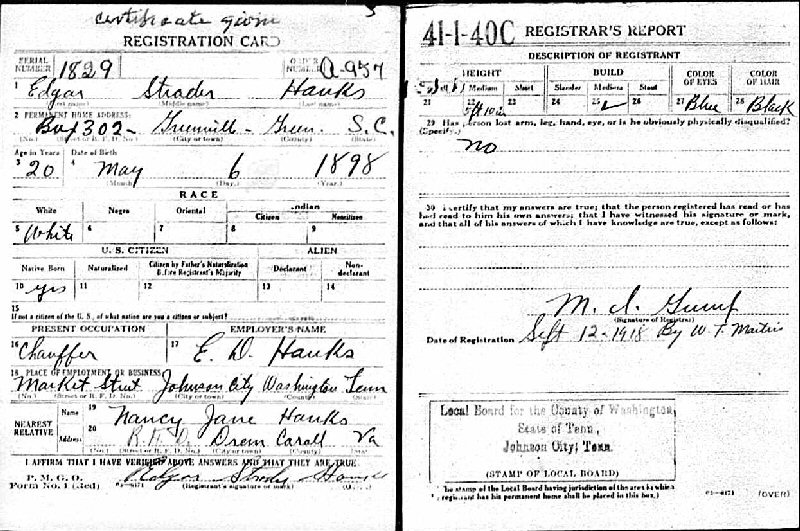 certificate given
REGISTRATION CARD
SERIAL NUMBER 1829 ORDER NUMBER A-957
1 Edgar Strader Hanks
(First name) (Middle name) (Last name)
2 PERMANENT HOME ADDRESS:
Box 302- Greenville- Green. S.C.
(No.) (Street or R. F. D. No.) (City or town) (County) (State)
Age in Years Date of Birth
3 20 4 May 6 1898
(Month.) (Day.) (Year.)
RACE
White Negro Oriental Indian
Citizen Noncitizen
5 White 6 7 8 9
U. S. CITIZEN ALIEN
Native Born Naturalized Citizen by Father's Naturalization Before Registrant's Majority Declarant Non-declarant
10 yes 11 12 13 14
15
If not a citizen of the U. S., of what nation are you a citizen or subject?
PRESENT OCCUPATION EMPLOYER'S NAME
16 Chauffer 17 E. D. Hanks
18 PLACE OF EMPLOYMENT OR BUSINESS:
Market Street Johnson City Washington Tenn
(No.) (Street or R. F. D. No.) (City or town) (County) (State)
NEAREST RELATIVE Name 19 Nancy Jane Hanks
Address 20 R.F.D. Drem Carall Va
(No.) (Street or R. F. D. No.) (City or town) (County) (State)
I AFFIRM THAT I HAVE VERIFIED ABOVE ANSWERS AND THAT THEY ARE TRUE
P. M. G. O.
Form No. 1 (Red) (Registrant's signature or mark) (OVER)
41-1-40C REGISTRAR'S REPORT
DESCRIPTION OF REGISTRANT
HEIGHT BUILD COLOR OF EYES COLOR OF HAIR
Medium Short Slender Medium Stout
21 22 5ft 10in 23 24 25 26 27 Blue 28 Black
29 Has person lost arm, leg, hand, eye, or is he obviously physically disqualified?
(Specify.)
no
30 I certify that my answers are true; that the person registered has read or has
had read to him his own answers; that I have witnessed his signature or mark,
and that all of his answers of which I have knowledge are true, except as follows:
(Signature of Registrar)
Date of Registration Sept 12-1918 By W. T.
Local Board for the County of Washington,
State of Tenn,
Johnson City, Tenn.
(STAMP OF LOCAL BOARD)
The stamp of the Local Board having jurisdiction of the area in which
registrant has his permanent home shall be placed in this box.)
(OVER)